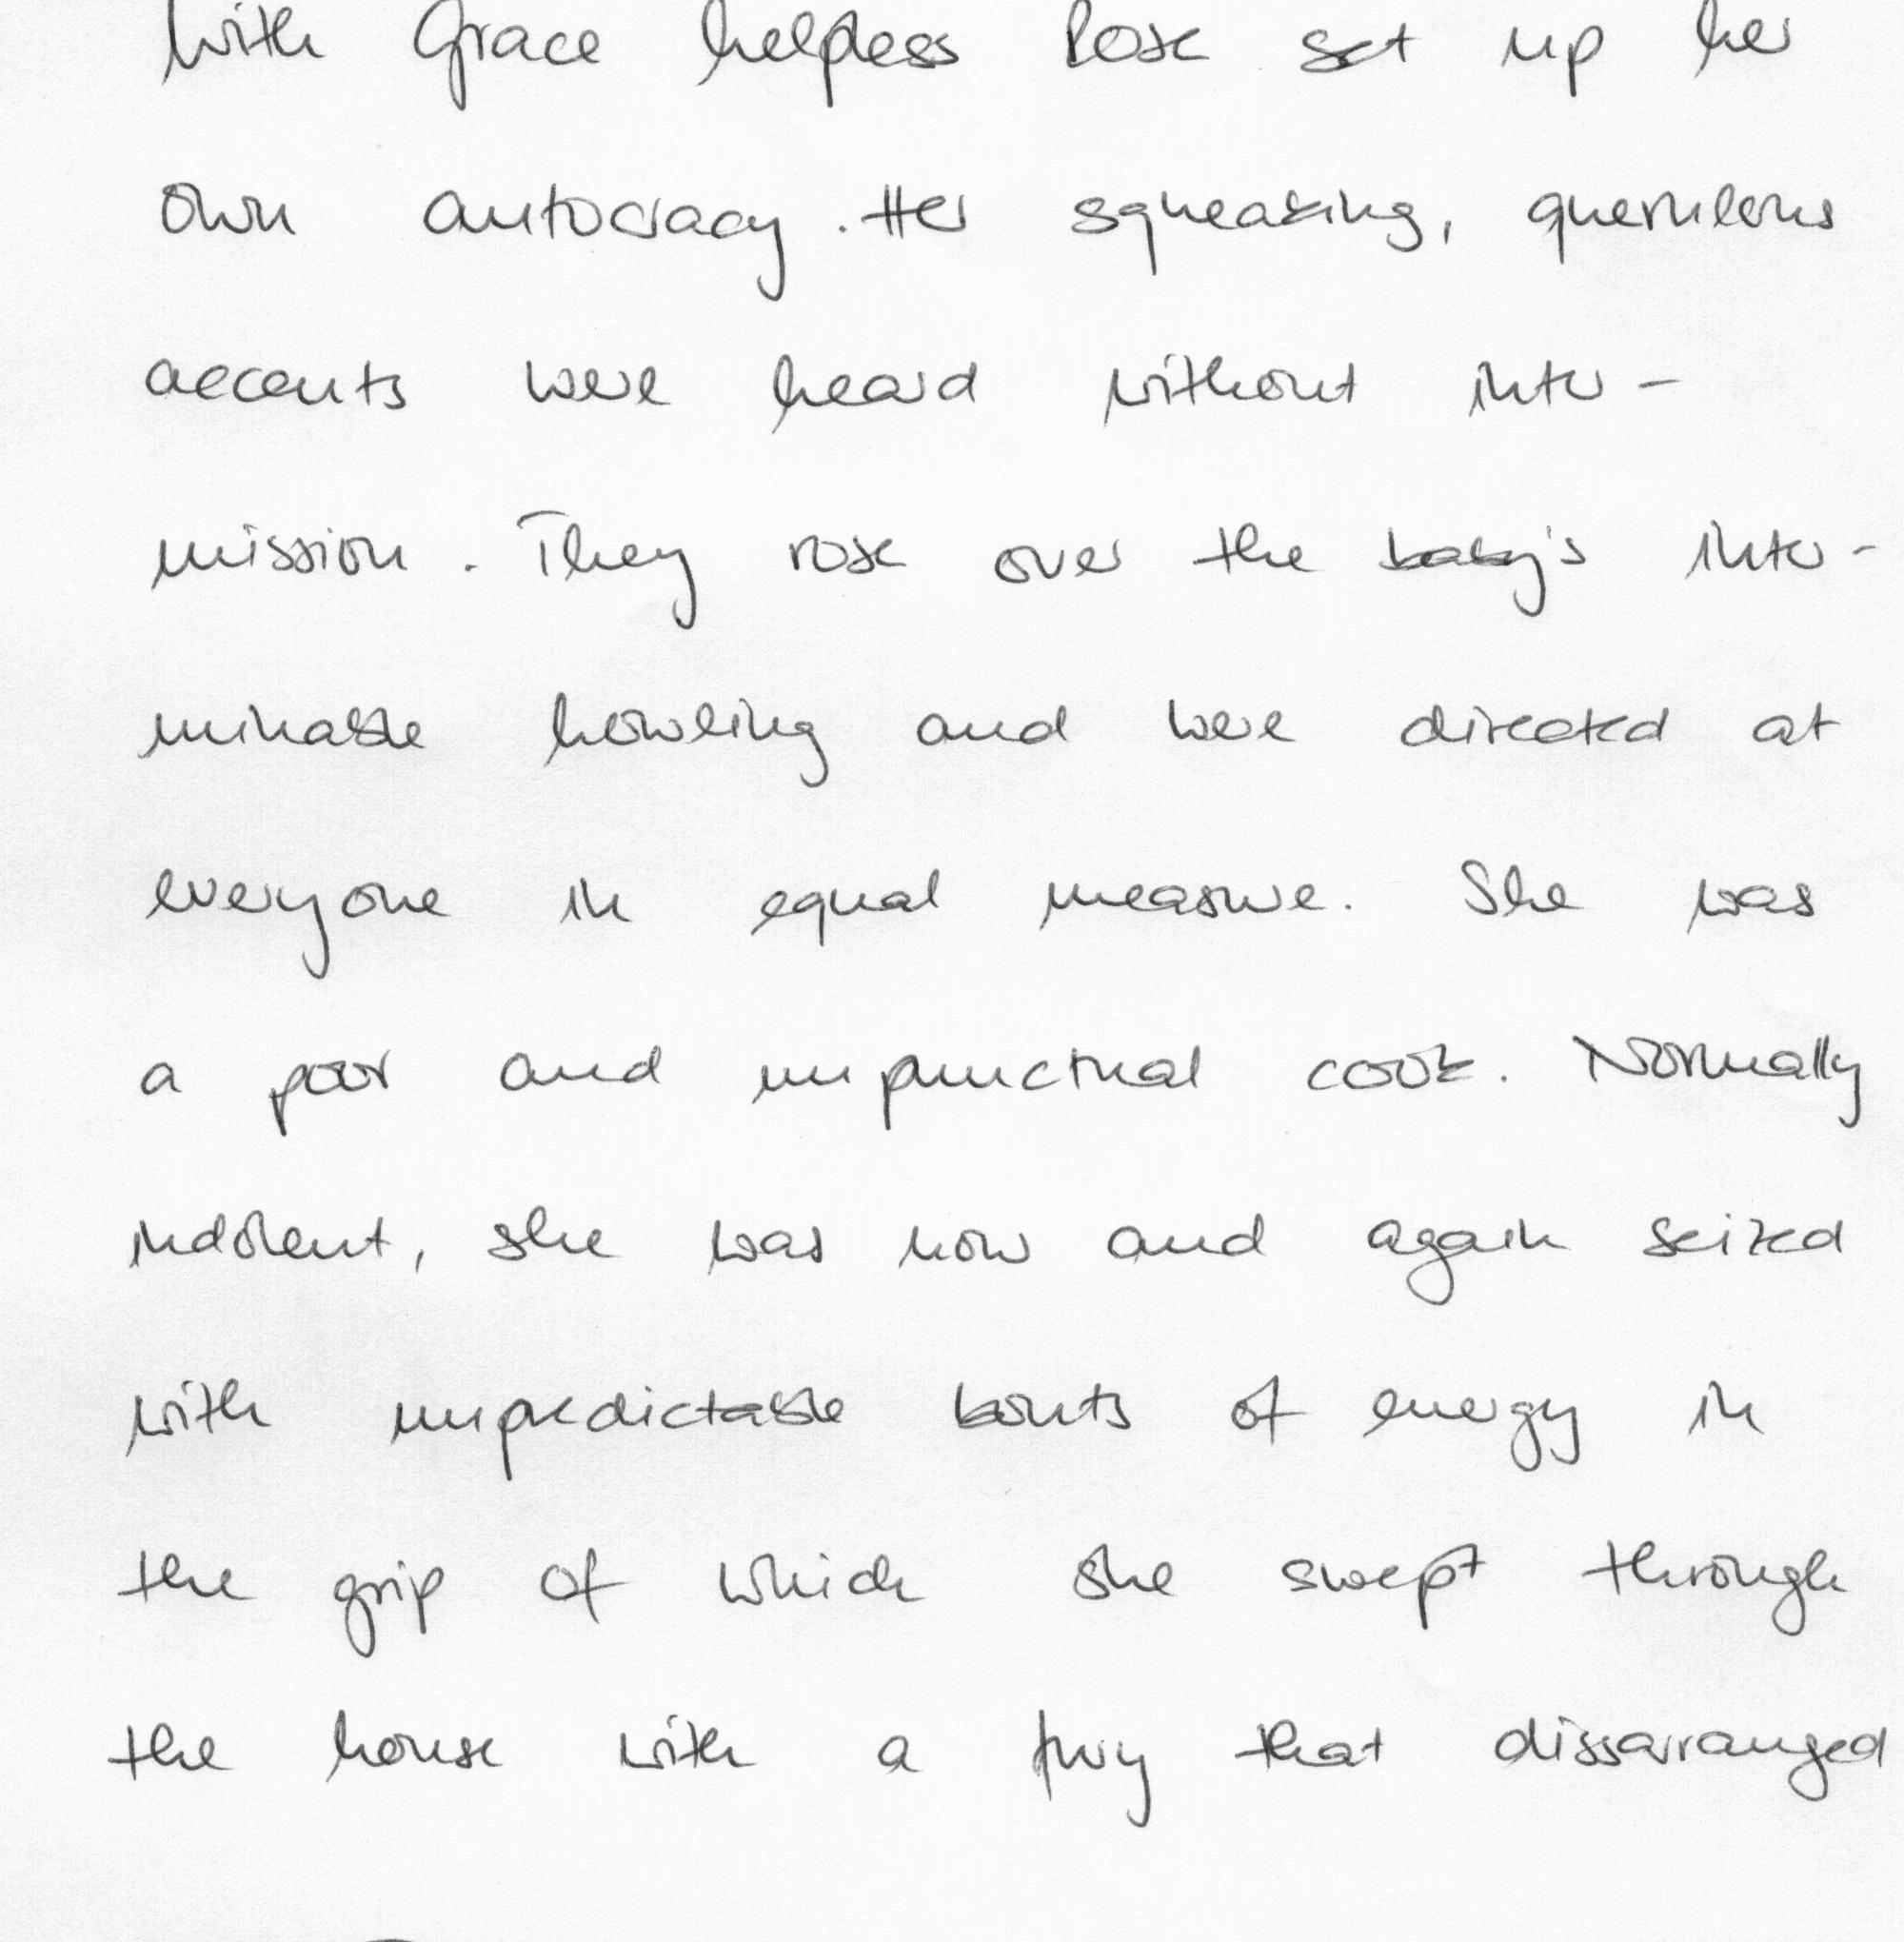 With Grace helpless Rose set up her
own autocracy. Her squeaking, querulous
accents were heard without inter-
mission. They rose over the baby's inter-
minable howling and were directed at
everyone in equal measure. She was
a poor and unpunctual cook. Normally
indolent, she was now and again seized
with unpredictable bouts of energy in
the grip of which she swept through
the house with a fury that dissarranged